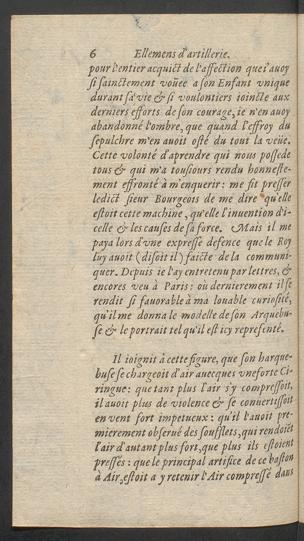 6 Ellemens d'artillerie.
pour l'entier acquict de l'affection que i'auoy
si sainctement voüee a son Enfant vnique
durant sa vie & si voulontiers ioincte aux
derniers efforts de son courage, ie n'en auoy
abandonné l'ombre, que quand l'effroy du
sepulchre m'en auoit osté du tout la veüe.
Cette volonté d'aprendre qui nous possede
tous & qui m'a tousiours rendu honneste-
ment effronté à m'enquerir: me fit presser
ledict sieur Bourgeois de me dire qu'elle
estoit cette machine, qu'elle l'inuention d'i-
celle & les causes de sa force. Mais il me
paya lors d'vne expresse defence que le Roy
luy auoit (disoit il) faicte de la communi-
quer. Depuis ie l'ay entretenu par lettres, &
encores veu à Paris: où dernierement il se
rendit si fauorable à ma louable curiosité,
qu'il me donna le modelle de son Arquebu-
se & le portrait tel qu'il est icy representé.
Il ioignit à cette figure, que son harque-
buse se chargeoit d'air auecques vne forte Ci-
ringue: que tant plus l'air s'y compressoit,
il auoit plus de violence & se conuertissoit
en vent fort impetueux: qu'il l'auoit pre-
mierement obserué des soufflets, qui rendoiēt
l'air d'autant plus fort, que plus ils estoient
pressés: que le principal artifice de ce baston
à Air, estoit a y retenir l'Air compressé dans